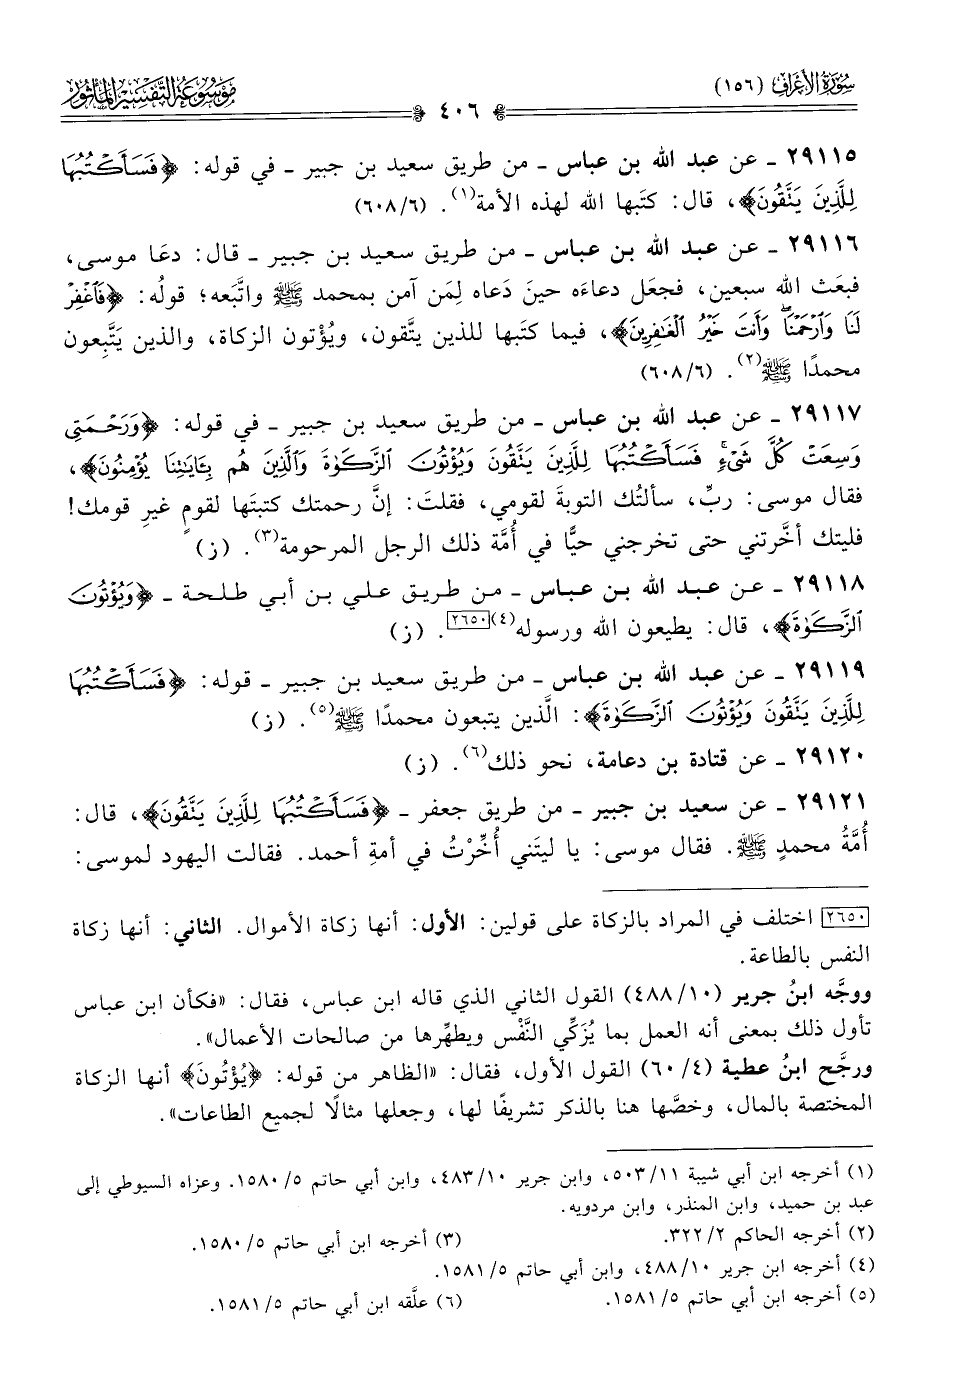 سُورَةُ الأَعْرَاف (١٥٦)
٤٠٦
مَوْسُوعَة التَّفْسِير المَأثُور
٢٩١١٥ ـ عن عبد الله بن عباس ـ من طريق سعيد بن جبير ـ في قوله: ﴿فَسَأَكْتُبُهَا
لِلَّذِينَ يَتَّقُونَ﴾، قال: كتَبها الله لهذه الأمة(١). (٦/٦٠٨)
٢٩١١٦ ـ عن عبد الله بن عباس ـ من طريق سعيد بن جبير ـ قال: دعَا موسى،
فبعَث الله سبعين، فجعَل دعاءَه حينَ دَعاه لِمَن آمن بمحمد ﷺ واتَّبَعه؛ قولُه: ﴿فَاغْفِرْ
لَنَا وَارْحَمْنَا وَأَنتَ خَيْرُ الْغَافِرِينَ﴾، فيما كتبها للذين يتَّقون، ويُؤْتون الزكاة، والذين يَتَّبِعون
محمدًا ﷺ(٢). (٦/٦٠٨)
٢٩١١٧ ـ عن عبد الله بن عباس ـ من طريق سعيد بن جبير ـ في قوله: ﴿وَرَحْمَتِي
وَسِعَتْ كُلَّ شَيْءٍ فَسَأَكْتُبُهَا لِلَّذِينَ يَتَّقُونَ وَيُؤْتُونَ الزَّكَوٰةَ وَالَّذِينَ هُم بِـَٔايَـٰتِنَا يُؤْمِنُونَ﴾،
فقال موسى: ربِّ، سألتُك التوبةَ لقومي، فقلتَ: إنَّ رحمتك كتبتَها لقومٍ غيرِ قومك!
فليتك أخَّرتني حتى تخرجني حيًّا في أُمَّة ذلك الرجل المرحومة(٣). (ز)
٢٩١١٨ ـ عن عبد الله بن عباس ـ من طريق علي بن أبي طلحة ـ ﴿وَيُؤْتُونَ
الزَّكَوٰةَ﴾، قال: يطيعون الله ورسوله(٤)[٢٦٥٠]. (ز)
٢٩١١٩ ـ عن عبد الله بن عباس ـ من طريق سعيد بن جبير ـ قوله: ﴿فَسَأَكْتُبُهَا
لِلَّذِينَ يَتَّقُونَ وَيُؤْتُونَ الزَّكَوٰةَ﴾: الَّذين يتبعون محمدًا ﷺ(٥). (ز)
٢٩١٢٠ ـ عن قتادة بن دعامة، نحو ذلك(٦). (ز)
٢٩١٢١ ـ عن سعيد بن جبير ـ من طريق جعفر ـ ﴿فَسَأَكْتُبُهَا لِلَّذِينَ يَتَّقُونَ﴾، قال:
أُمَّةُ محمدٍ ﷺ. فقال موسى: يا ليتَني أُخِّرْتُ في أمةِ أحمد. فقالت اليهود لموسى:
[٢٦٥٠] اختلف في المراد بالزكاة على قولين: الأول: أنها زكاة الأموال. الثاني: أنها زكاة
النفس بالطاعة.
ووجَّه ابنُ جرير (١٠/٤٨٨) القول الثاني الذي قاله ابن عباس، فقال: «فكأن ابن عباس
تأول ذلك بمعنى أنه العمل بما يُزَكِّي النَّفْس ويطهِّرها من صالحات الأعمال».
ورجَّح ابنُ عطية (٤/٦٠) القول الأول، فقال: «الظاهر من قوله: ﴿يُؤْتُونَ﴾ أنها الزكاة
المختصة بالمال، وخصَّها هنا بالذكر تشريفًا لها، وجعلها مثالًا لجميع الطاعات».
(١) أخرجه ابن أبي شيبة ١١/٥٠٣، وابن جرير ١٠/٤٨٣، وابن أبي حاتم ٥/١٥٨٠. وعزاه السيوطي إلى
عبد بن حميد، وابن المنذر، وابن مردويه.
(٢) أخرجه الحاكم ٢/٣٢٢. (٣) أخرجه ابن أبي حاتم ٥/١٥٨٠.
(٤) أخرجه ابن جرير ١٠/٤٨٨، وابن أبي حاتم ٥/١٥٨١.
(٥) أخرجه ابن أبي حاتم ٥/١٥٨١. (٦) علَّقه ابن أبي حاتم ٥/١٥٨١.